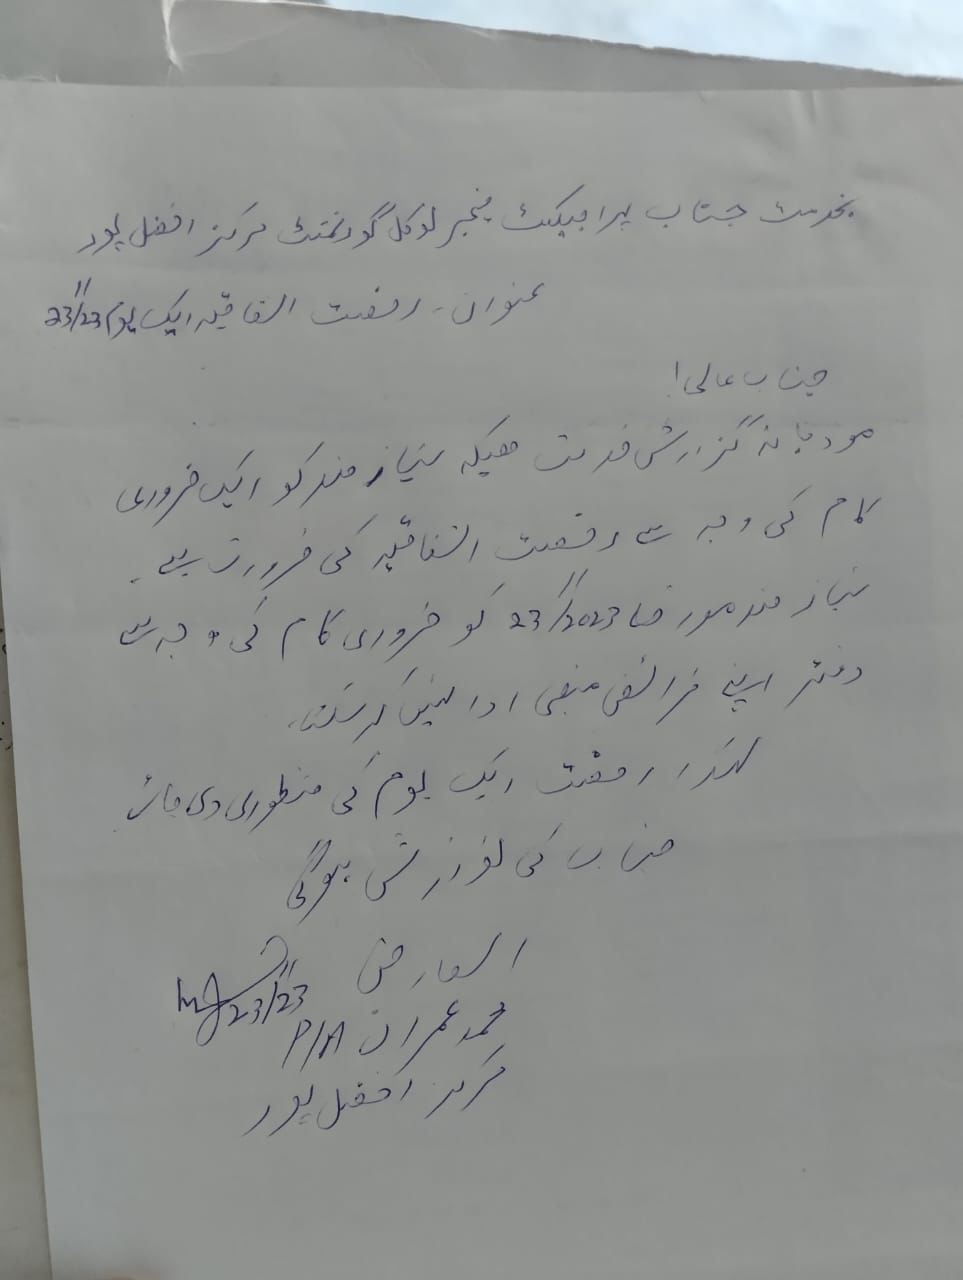 بخدمت جناب پراجیکٹ منیجر لوکل گورنمنٹ مرکز افضل پور
عنوان۔ رخصت اتفاقیہ ایک یوم 23/11/23
جناب عالی!
مودبانہ گزارش خدمت ھیکہ نیاز مند کو ایک ضروری
کام کی وجہ سے رخصت اتفاقیہ کی ضرورت ہے۔
نیاز مند مورخہ 23/11/2023 کو ضروری کام کی وجہ سے
دفتر اپنے فرائض منصبی ادا نہیں کر سکتا۔
لہذا رخصت ایک یوم کی منظوری دی جائے
جناب کی نوازش ہوگی
العارض
23/11/23
محمد عمران P/A
مرکز افضل پور